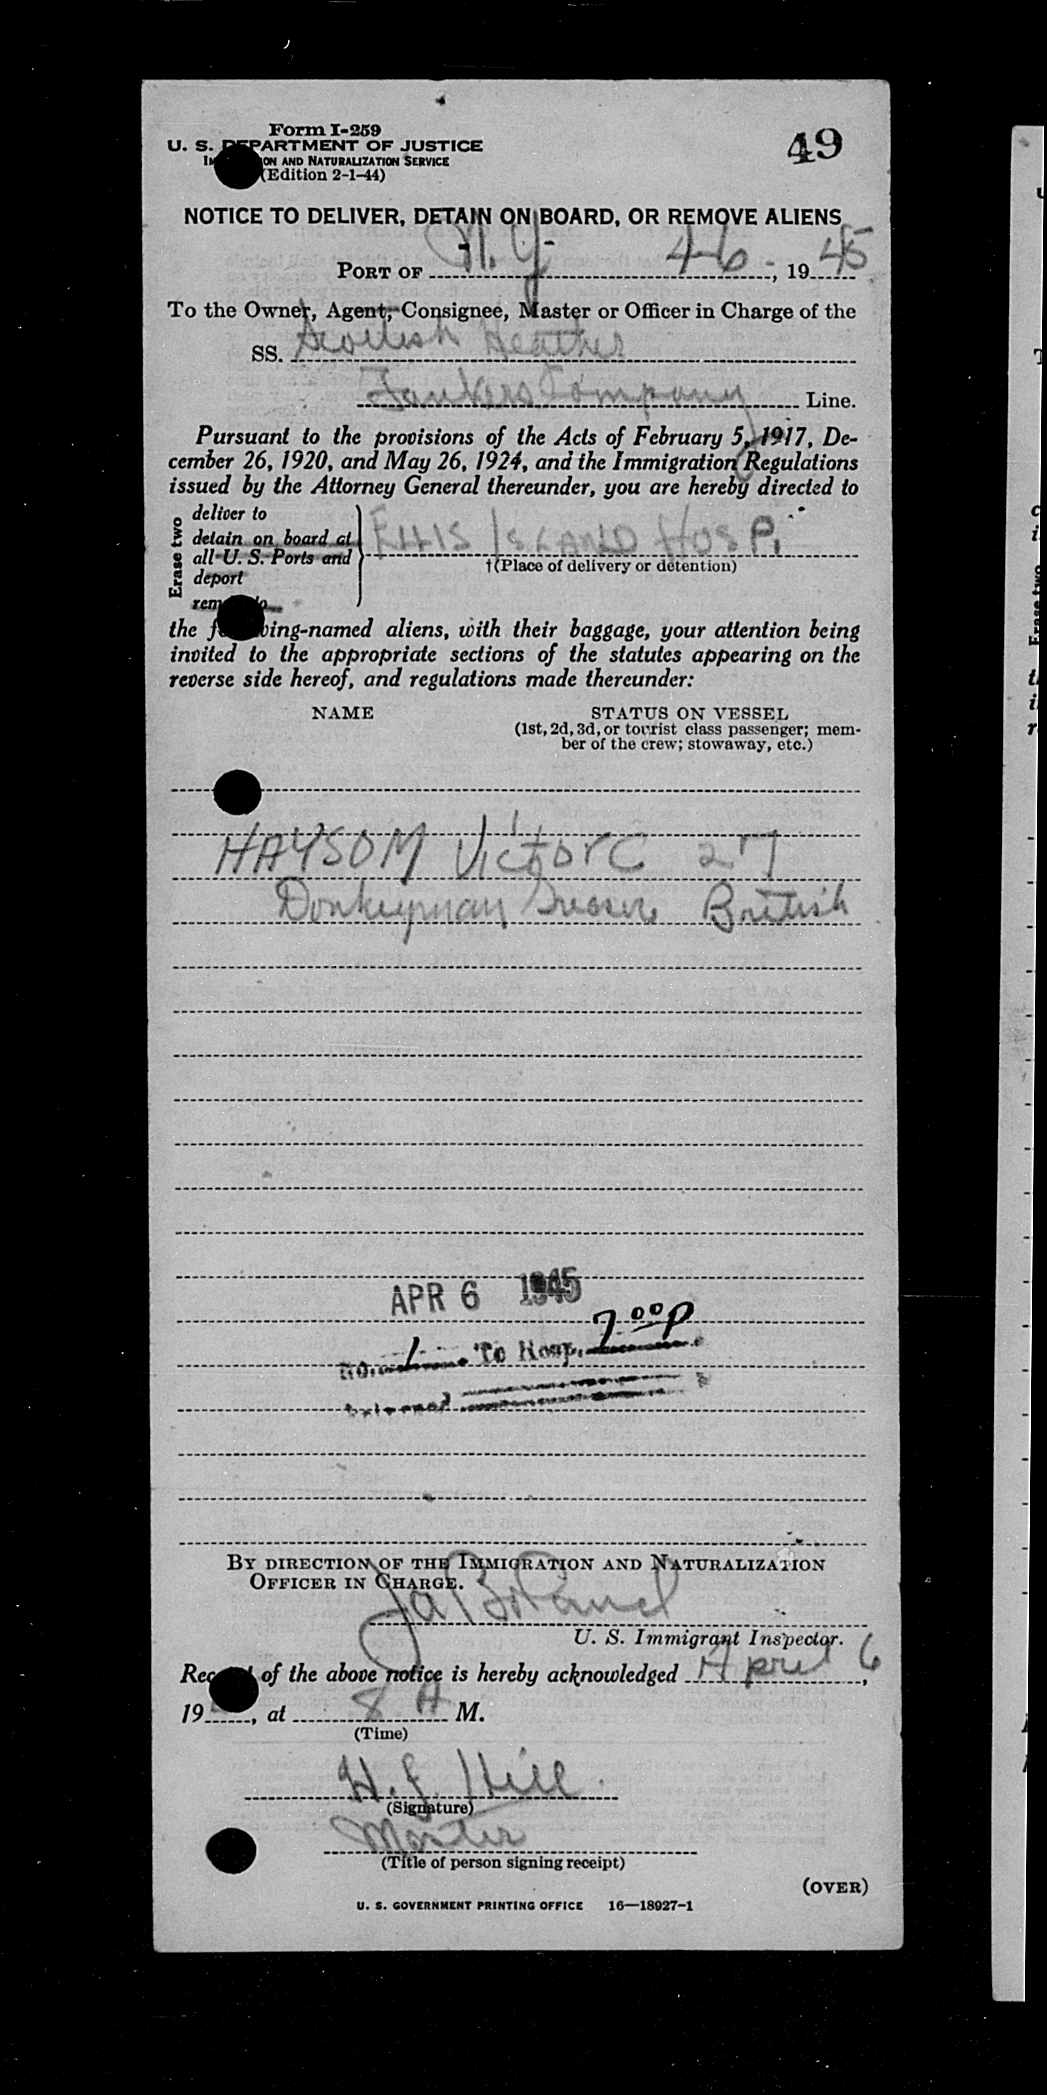 Form I-259
49
U. S. DEPARTMENT OF JUSTICE
ON AND NATURALIZATION SERVICE
(Edition 2-1-44)
NOTICE TO DELIVER, DETAIN ON BOARD, OR REMOVE ALIENS
PORT OF N.Y. 4-6-, 1945
To the Owner, Agent, Consignee, Master or Officer in Charge of the
SS. Scottish Heather
Tankers Company Line.
Pursuant to the provisions of the Acts of February 5, 1917, De-
cember 26, 1920, and May 26, 1924, and the Immigration Regulations
issued by the Attorney General thereunder, you are hereby directed to
Erase two
deliver to
detain on board at
all U. S. Ports and
deport
ELLIS ISLAND HOSP.
†(Place of delivery or detention)
the following-named aliens, with their baggage, your attention being
invited to the appropriate sections of the statutes appearing on the
reverse side hereof, and regulations made thereunder:
NAME STATUS ON VESSEL
(1st, 2d, 3d, or tourist class passenger; mem-
ber of the crew; stowaway, etc.)
HAYSOM Victor C 27
Donkeyman Greaser British
APR 6 1945
No. 1 To Hosp. 7 00 P
BY DIRECTION OF THE IMMIGRATION AND NATURALIZATION
OFFICER IN CHARGE.
U. S. Immigrant Inspector.
of the above notice is hereby acknowledged April 6,
19, at 8 A M.
(Time)
H. J. Hill
(Signature)
Master
(Title of person signing receipt)
(OVER)
U. S. GOVERNMENT PRINTING OFFICE 16—18927-1